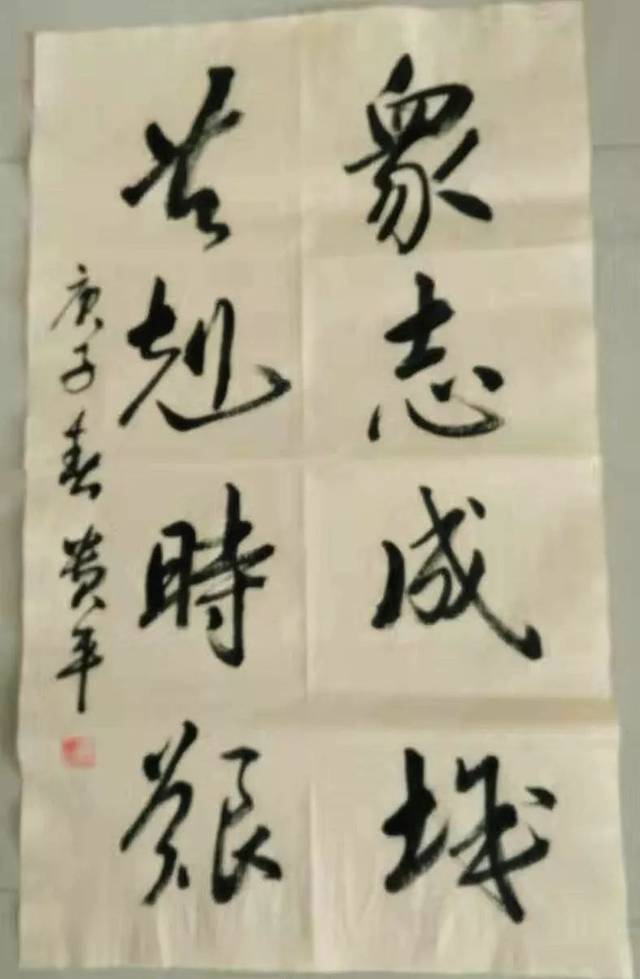 衆志成城
共尅時艱
庚子春貴平